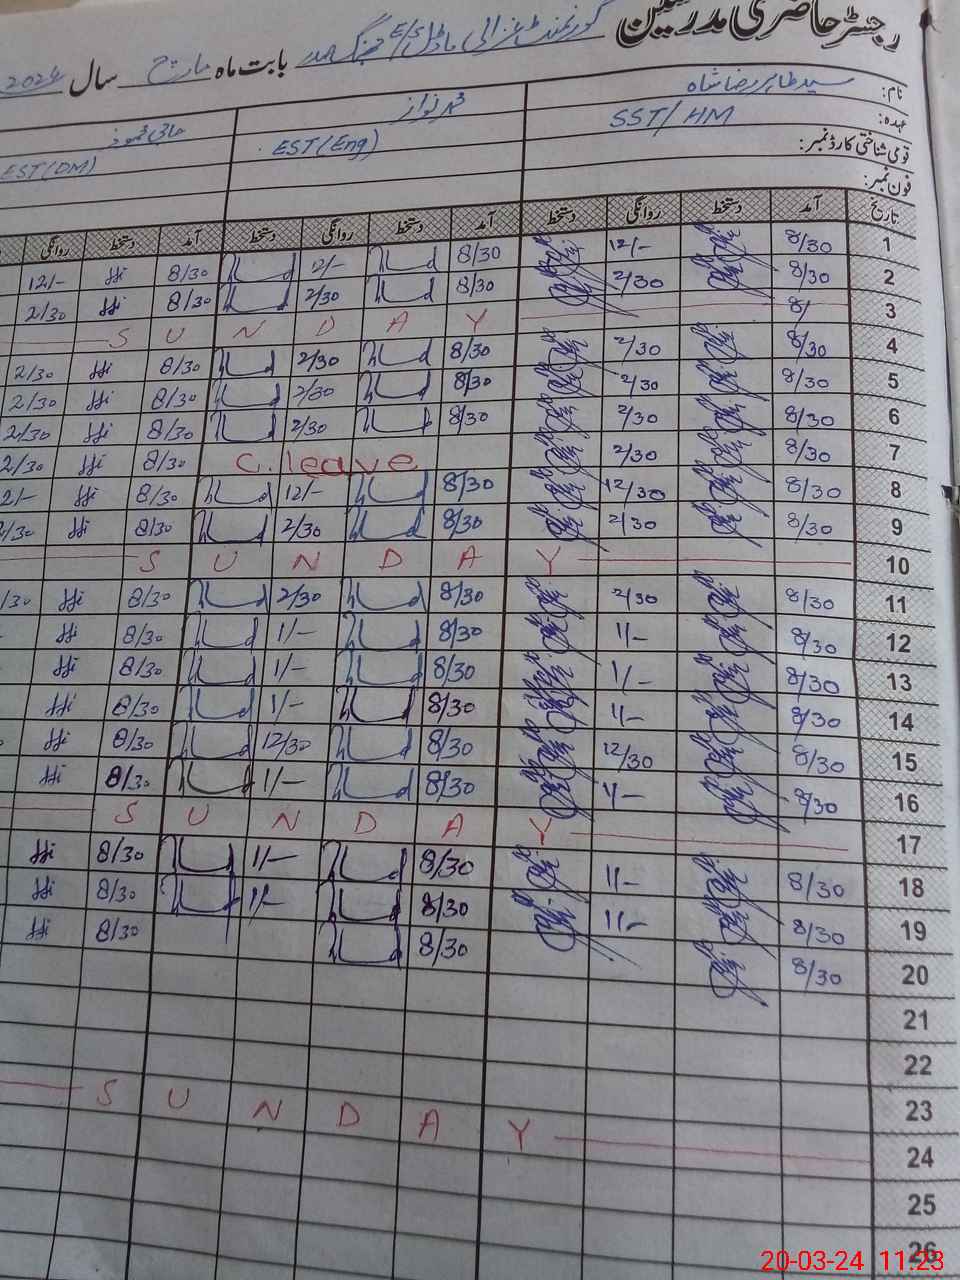 رجسٹر حاضری مدرسین گورنمنٹ غزالی ماڈل E/S جھنگ صدر بابت ماہ مارچ سال 2024
نام: سید طاہر رضا شاہ
عہدہ: SST/HM EST (Eng) EST (DM)
قومی شناختی کارڈ نمبر:
فون نمبر:
تاریخ آمد دستخط روانگی دستخط آمد دستخط روانگی دستخط آمد دستخط روانگی
1 8/30 12/- 8/30 12/- 8/30 12/-
2 8/30 2/30 8/30 2/30 8/30 2/30
3 8/ S U N D A Y
4 8/30 2/30 8/30 2/30 8/30 2/30
5 8/30 2/30 8/30 2/30 8/30 2/30
6 8/30 2/30 8/30 2/30 8/30 2/30
7 8/30 2/30 C. leave 8/30 2/30
8 8/30 12/30 8/30 12/- 8/30 2/-
9 8/30 2/30 8/30 2/30 8/30 2/30
10 S U N D A Y
11 8/30 2/30 8/30 2/30 8/30 /30
12 8/30 1/- 8/30 1/- 8/30
13 8/30 1/- 8/30 1/- 8/30
14 8/30 1/- 8/30 1/- 8/30
15 8/30 12/30 8/30 12/30 8/30
16 8/30 1/- 8/30 1/- 8/30
17 S U N D A Y
18 8/30 1/- 8/30 1/- 8/30
19 8/30 1/- 8/30 1/- 8/30
20 8/30 8/30 8/30
21
22
23
24 S U N D A Y
25
26
20-03-24 11:23